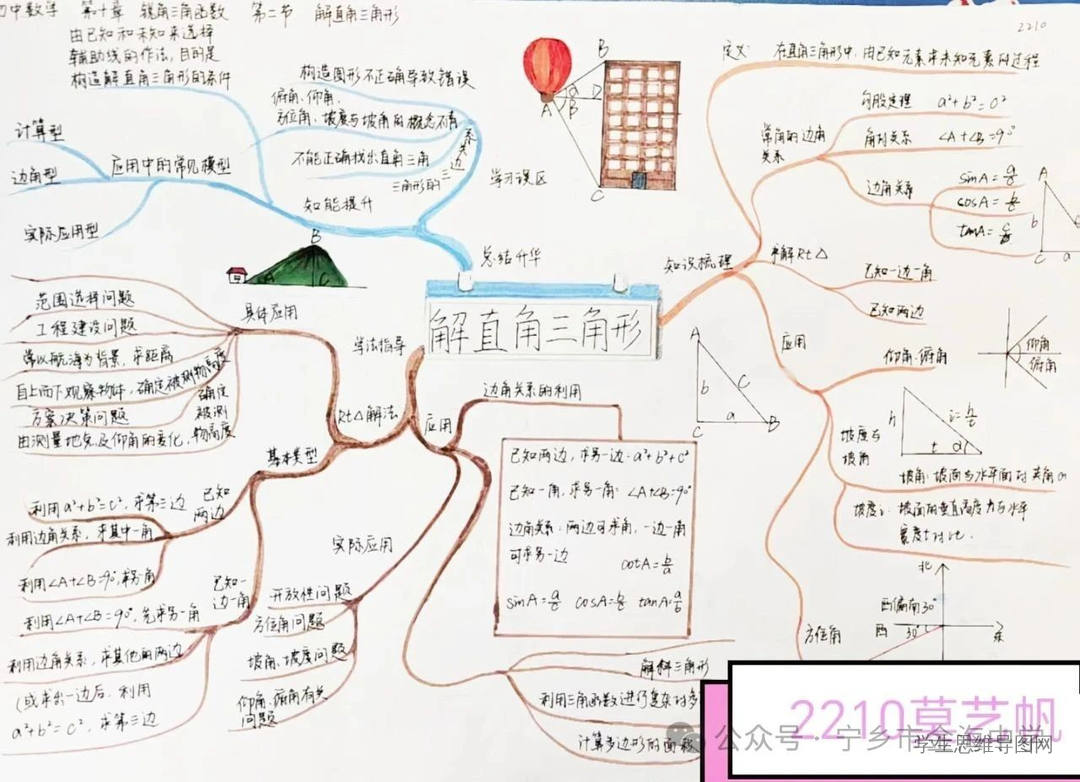 初中数学 第十章 锐角三角函数 第二节 解直角三角形
2210
由已知和未知来选择
辅助线的作法,目的是
构造解直角三角形的条件
计算型
边角型
实际应用型
应用中的常见模型
构造图形不正确导致错误
俯角、仰角、
方位角、坡度与坡角的概念不清
不能正确找出直角三角
三角形的三边关系
知能提升
学习误区
总结升华
A
B
C
D
α
β
定义:在直角三角形中,由已知元素求未知元素的过程
勾股定理 a²+b²=c²
常用的边角
关系
角的关系 ∠A+∠B=9°
边角关系
sinA=a/c
cosA=b/c
tanA=
A
b
C
a
知识梳理
求解Rt△
已知一边一角
已知两边
应用
仰角、俯角
仰角
俯角
坡度与
坡角
h
i=h/t
t
α
坡角:坡面与水平面的夹角α
坡度i:坡面的垂直高度h与水平
宽度t的比.
方位角
北
西偏南30°
西 30°
东
解直角三角形
B
C
A
b
c
a
C
B
学法指导
Rt△解法
应用
具体应用
范围选择问题
工程建设问题
常以航海为背景,求距离
自上而下观察物体,确定被测物高度
方案决策问题
由测量地点及仰角的变化,
确定
被测
物高度
基本类型
已知
两边
利用a²+b²=c²,求第三边
利用边角关系,求其中一角
利用∠A+∠B=90°,求另一角
已知一
边一角
利用∠A+∠B=90°,先求另一角
利用边角关系,求其他的两边
(或求出一边后,利用
a²+b²=c²,求第三边
实际应用
开放性问题
方位角问题
坡角、坡度问题
仰角、俯角有关
问题
边角关系的利用
已知两边,求另一边:a²+b²=c²
已知一角,求另一角:∠A+∠B=90°
边角关系:两边可求角,一边一角
可求另一边 cotA=b/a
sinA=a/c cosA=b/c tanA=a/b
解斜三角形
利用三角函数进行复杂的多
计算多边形的面积
2210草艺帆
学生思维导图网
公众号·宁乡市